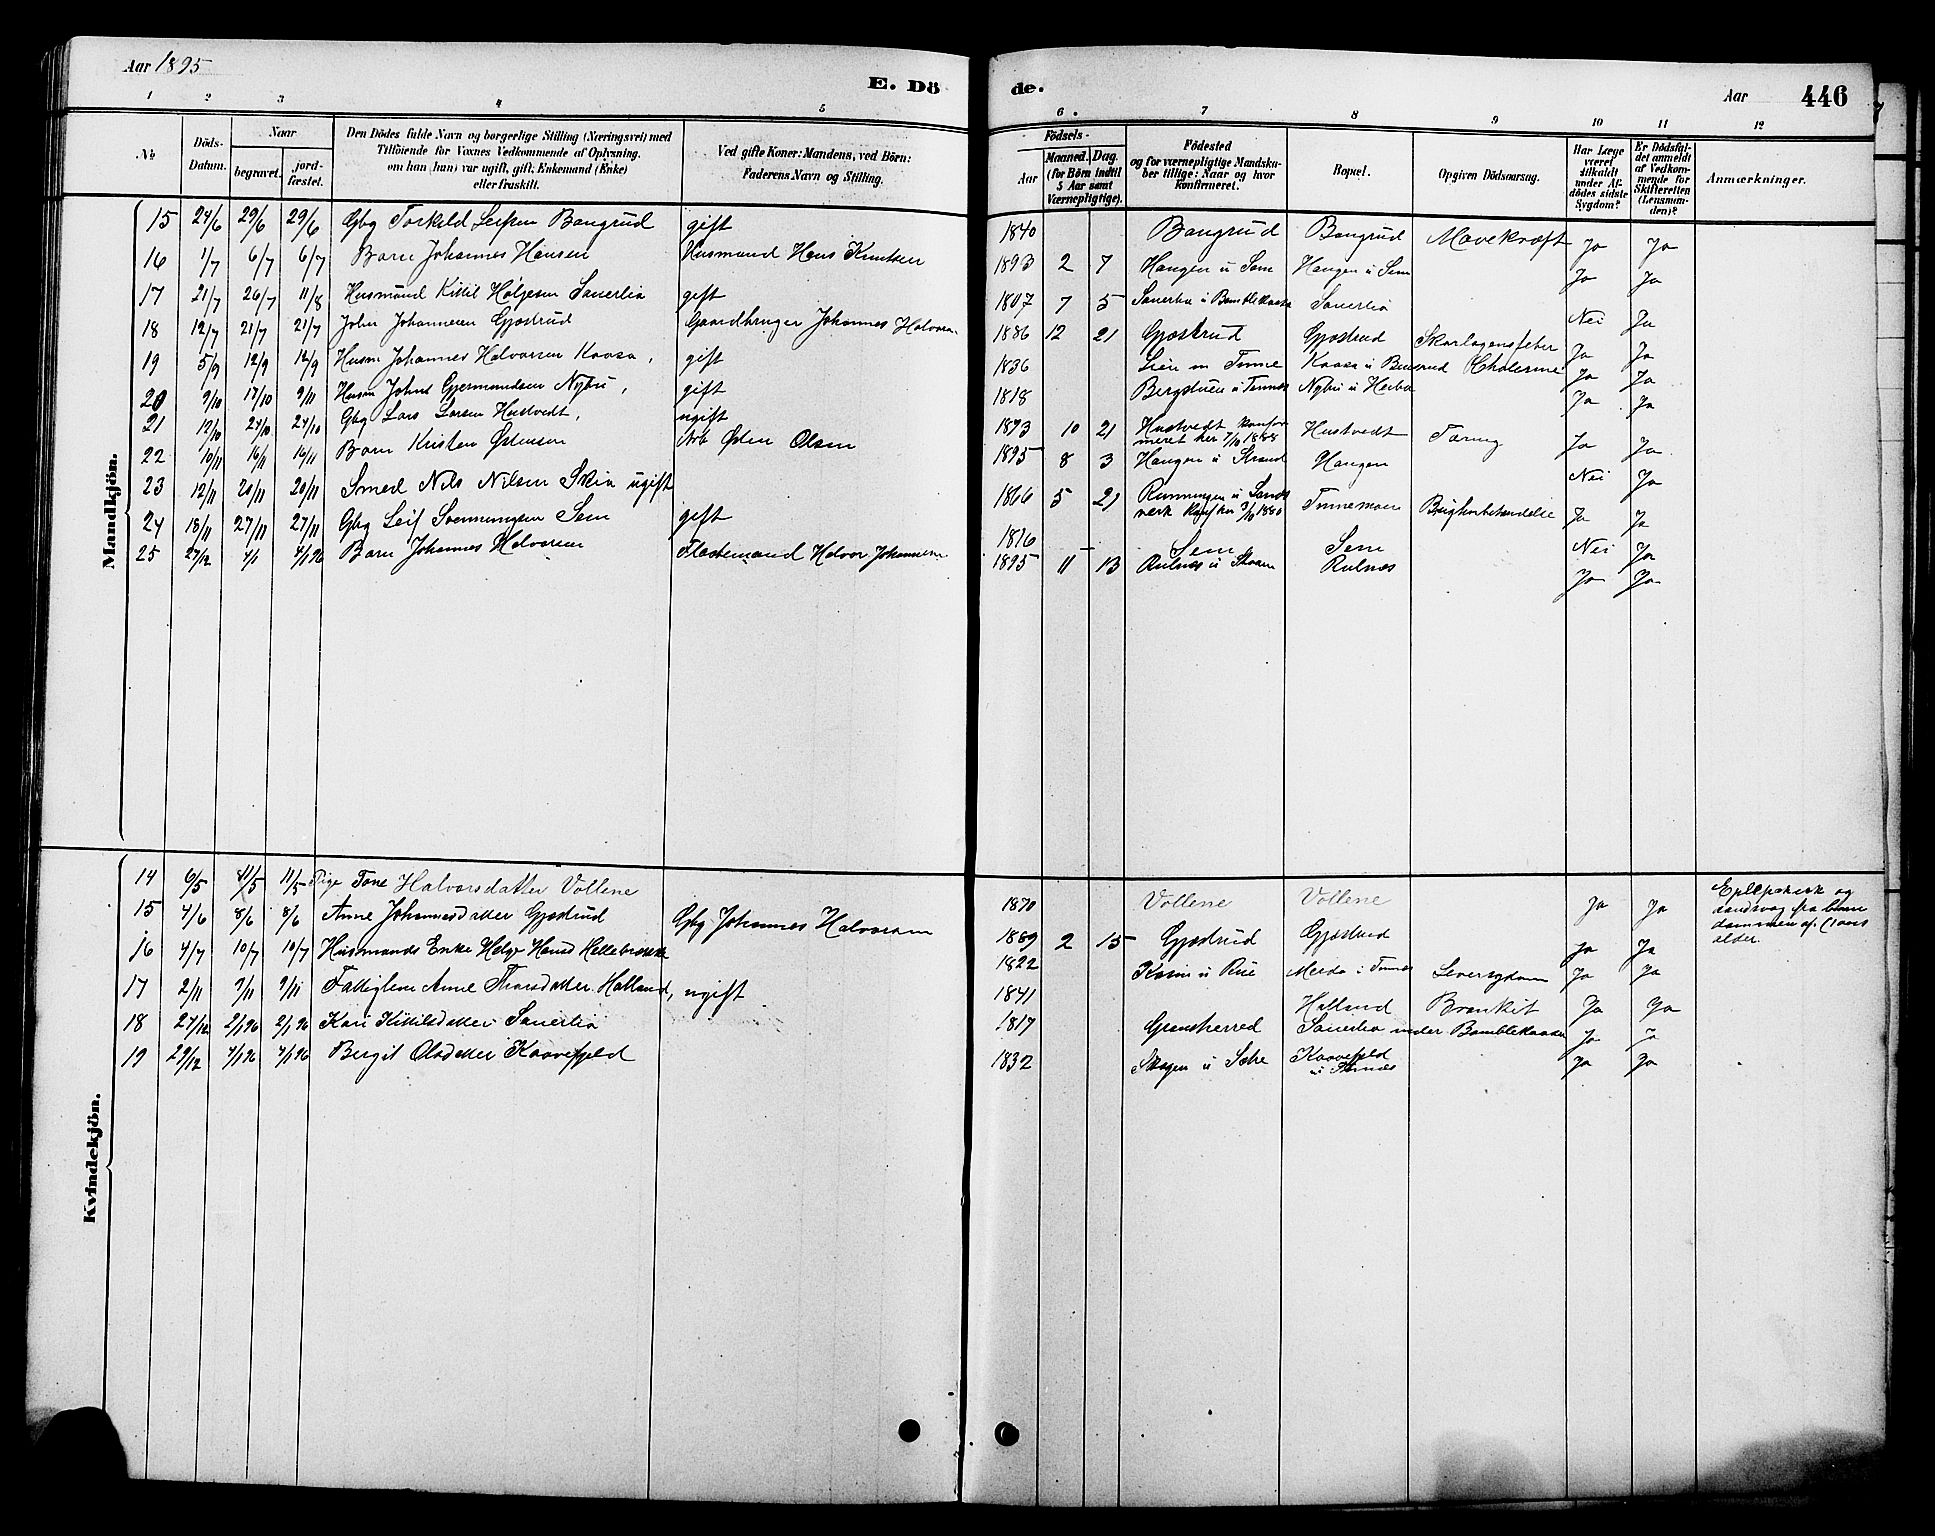 Aar 1895
E. Dö
de.
Aar
446
1 2 3 4 5 6. 7 8 9 10 11 12
No
Döds-Datum.
Naar
begravet.
jord-fæstet.
Den Dödes fulde Navn og borgerlige Stilling (Næringsvei) med
Tilföiende for Voxnes Vedkommende af Oplysning.
om han (hun) var ugift, gift, Enkemand (Enke)
eller fraskilt.
Ved gifte Koner: Mandens, ved Börn:
Faderens Navn og Stilling.
Födsels-
Aar
Maaned. Dag.
(for Börn indtil
5 Aar samt
Værnepligtige).
Födested
og for værnepligtige Mandska-
ber tillige: Naar og hvor
Konfirmeret.
Bopæl.
Opgiven Dödsaarsag.
Har Læge
været
tilkaldt
under Af-
dödes sidste
Sygdom?
Er Dödsfal-
det anmeldt
af Vedkom-
mende for
Skifteretten
(Lensman-
den)?
Anmærkninger.
Mandkjön.
15 24/6 29/6 29/6 Gbg Torkild Leifsen Bangrud gift 1840 Bangrud Bangrud Mavekræft Ja Ja
16 1/7 6/7 6/7 Barn Johannes Hansen Husmand Hans Knutsen 1893 2 7 Haugen u Sem Haugen u Sem Ja Ja
17 21/7 26/7 11/8 Husmand Kittil Høljesen Sauerlia gift 1807 7 5 Sauerlia u Bamblekaasa Sauerlia Nei Ja
18 12/7 21/7 21/7 John Johannesen Gjøstrud Gaardbruger Johannes Halvorsen 1886 12 21 Gjøstrud Gjøstrud Skarlagensfeber Ja Ja
19 5/9 12/9 12/9 Husm Johannes Halvorsen Kaasa, gift 1836 Lien Tinne Kaasa u Cholerine Ja Ja
20 9/10 17/10 9/11 Husm John Gjermundsen Nybu, gift 1818 Bergstuen u Tinnes Nybu u Ja Ja
21 12/10 24/10 24/10 Gbg Lars Larsen Hustvedt, ugift 1873 10 21 Hustvedt Konfir-
meret her 7/10 1888 Hustvedt Tæring Ja Ja
22 10/11 16/11 16/11 Barn Kristen Østensen Arb Østen Olsen 1895 8 3 Haugen u Strand Haugen Nei Ja
23 12/11 20/11 20/11 Smed Nils Nilsen Skia ugift 1866 5 21 Runningen u Sands
værk Konf her 3/10 1880 Tinnemoen Brighorbetændelse Ja Ja
24 18/11 27/11 27/11 Gbg Leif Svenningsen Sem gift 1816 Sem Sem Nei Ja
25 27/12 4/1 4/1 96 Barn Johannes Halvorsen Flødemand Halvor Johannesen 1895 11 13 Rulnæs u Rulnæs Ja Ja
Kvindekjön.
14 6/5 11/5 11/5 Pige Tone Halvorsdatter Vollene 1870 Vollene Vollene Ja Ja Epleptisk og
aandsvag fra barn
15 4/6 8/6 8/6 Anne Johannesdatter Gjøstrud Gbg Johannes Halvorsen 1889 2 15 Gjøstrud Gjøstrud Ja Ja
alder.
16 4/7 10/7 10/7 Husmands Enke Helge Hansd Hellebrække 1822 Kasin u Rue Meida i Tinnes Leversygdom Ja Ja
17 2/11 9/11 9/11 Fattiglem Anne Thorsdatter Halland, ugift 1841 Halland Bronkit Ja Ja
18 27/12 2/1 96 2/1 96 Kari Kittilsdatter Sauerlia 1817 Gransherred Sauerlia under Bamblekaasa Ja Ja
19 29/12 4/1 96 4/1 96 Bergit Olsdatter Kaavefjeld 1832 Skogen u Sæbe Kaavefjeld Ja Ja